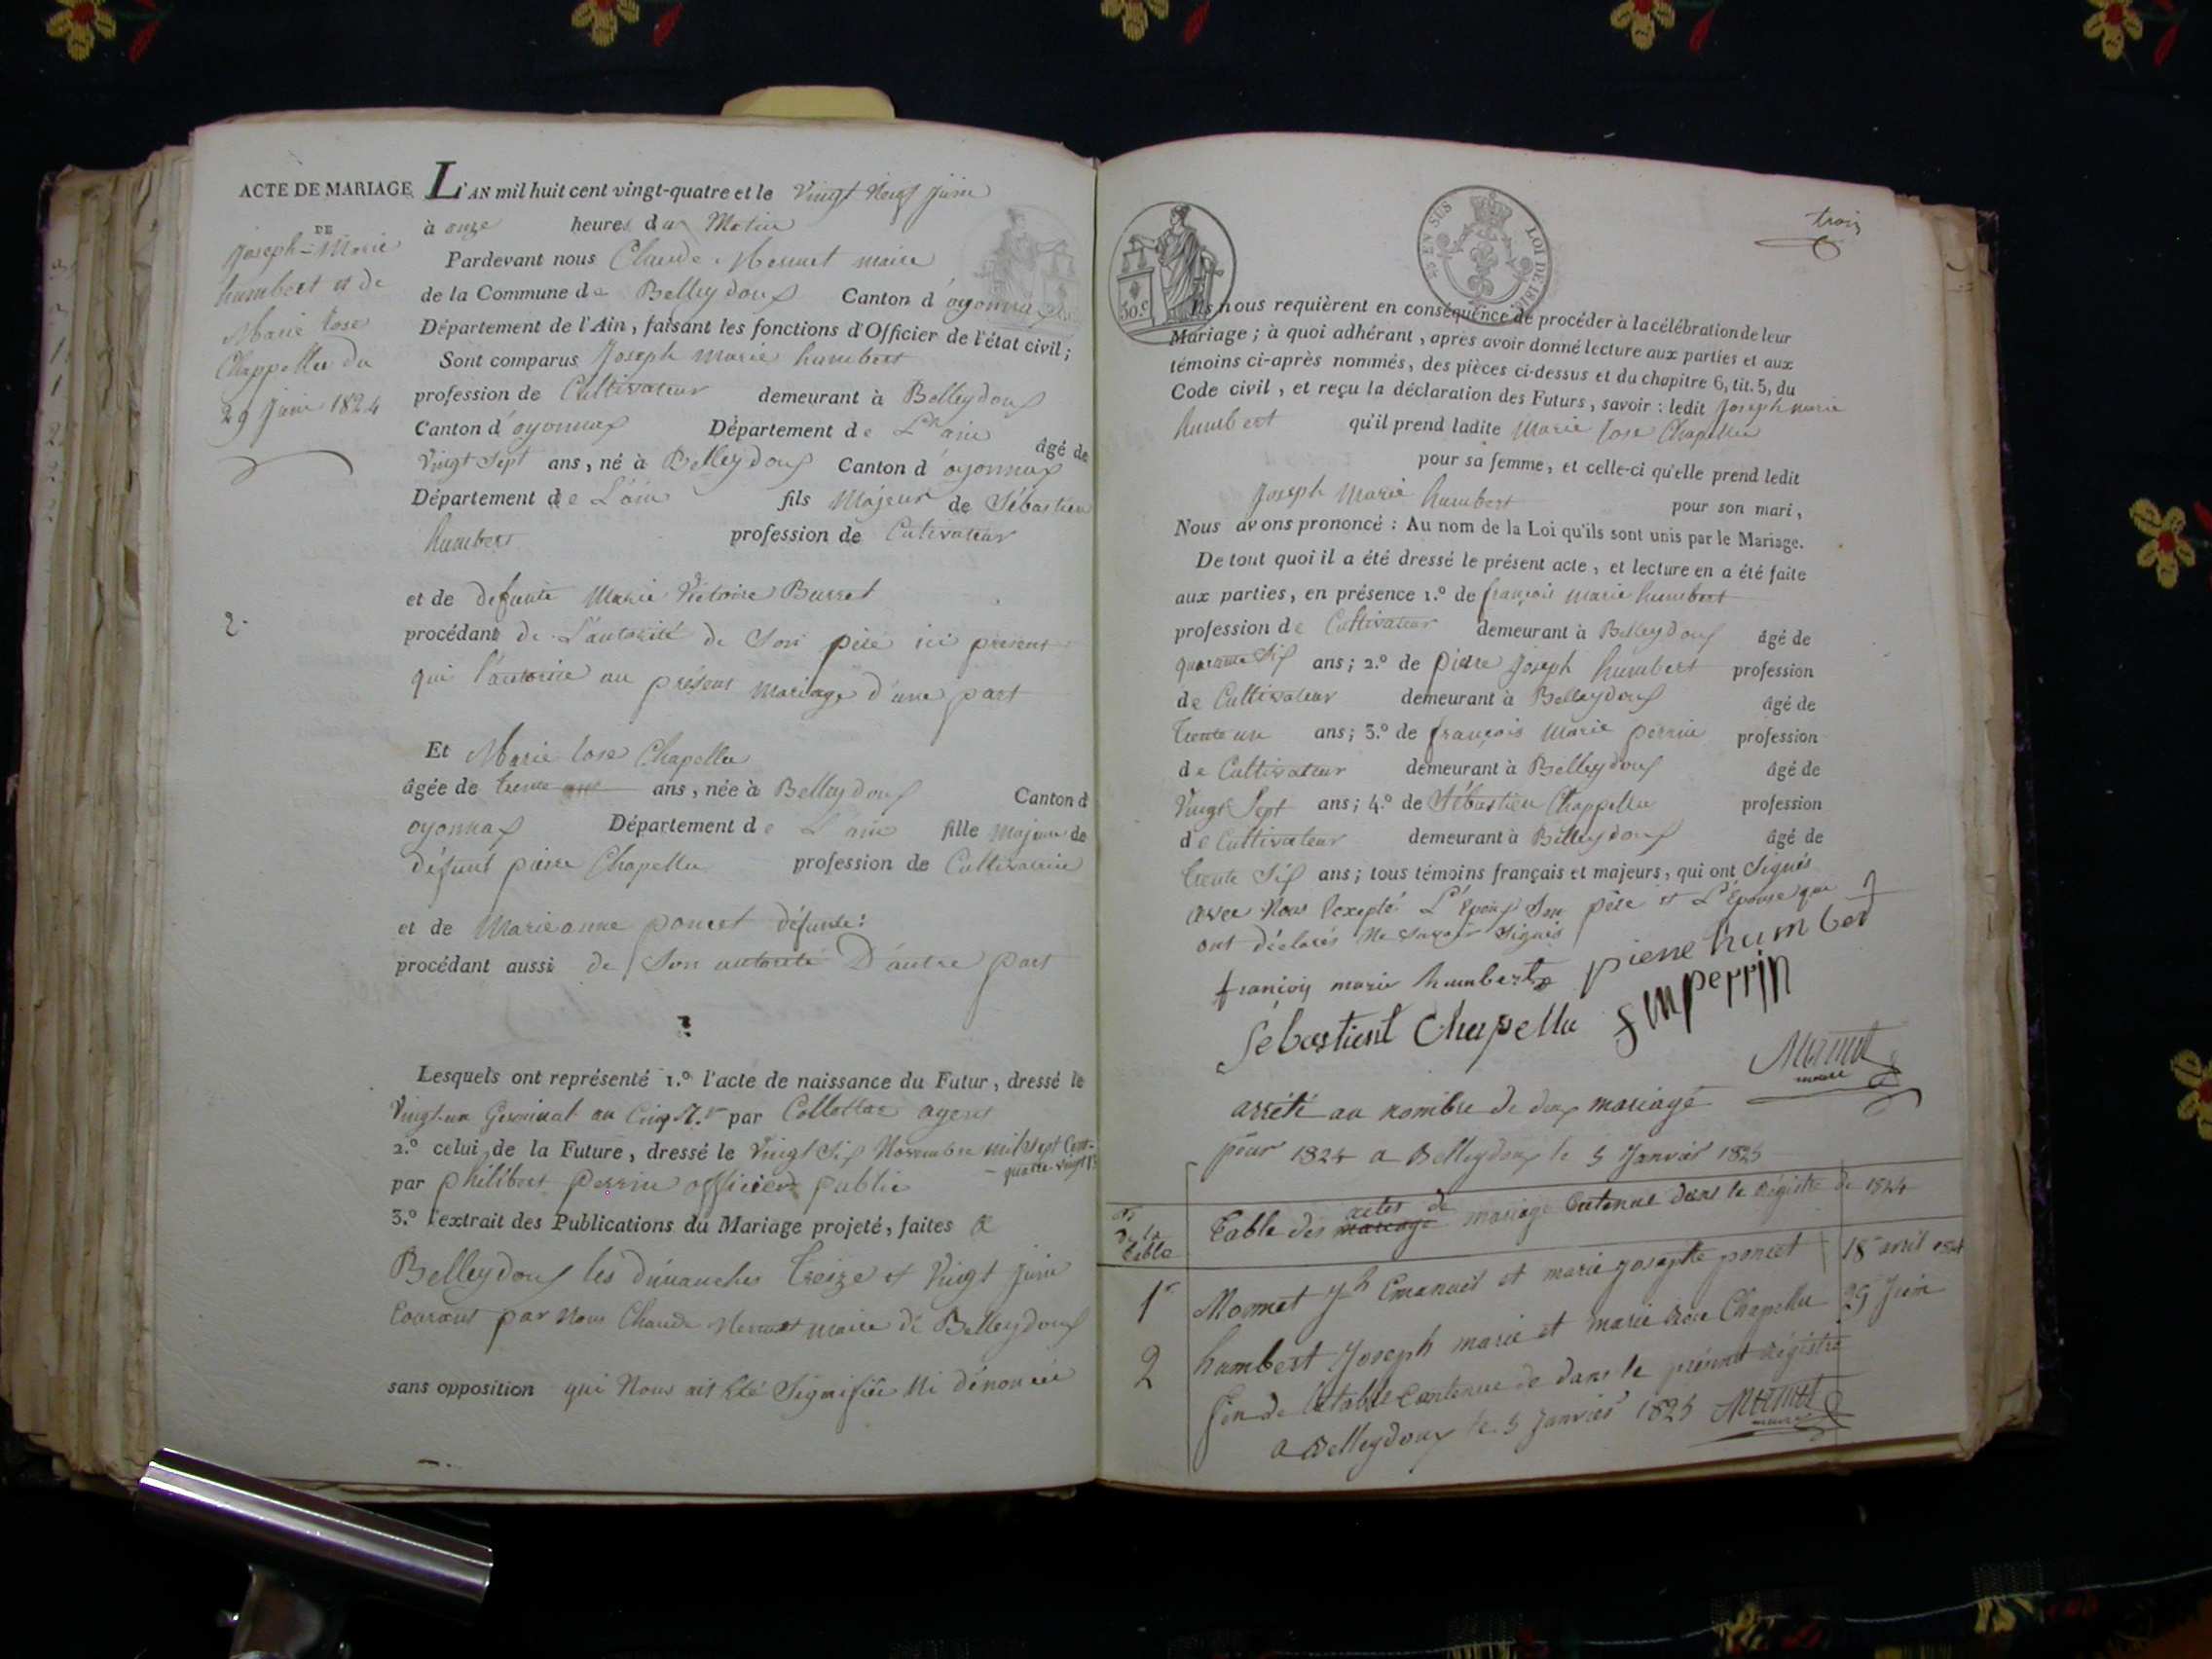 ACTE DE MARIAGE
DE
Joseph-Marie
humbert et de
Marie Rose
Chappellu du
29 Juin 1824
2.
L'AN mil huit cent vingt-quatre et le Vingt Neuf Juin
à onze heures du Matin
Pardevant nous Claude Mermet maire
de la Commune de Belleydoux Canton d'oyonnax
Département de l'Ain, faisant les fonctions d'Officier de l'état civil;
Sont comparus Joseph Marie humbert
profession de Cultivateur demeurant à Belleydoux
Canton d'oyonnax Département de L'ain âgé de
Vingt Sept ans, né à Belleydoux Canton d'oyonnax
Département de L'ain fils Majeur de Sébastien
humbert profession de Cutivateur
et de defunte Marie Victoire Burret
procédant de L'autorité de Son père ici présent
qui l'autorise au présent Mariage d'une part
Et Marie Rose Chapellu
âgée de trente ans, née à Belleydoux Canton d
oyonnax Département de L'ain fille majeure de
défunt pierre Chapellu profession de Cultivateur
et de Marieanne poncet défunte:
procédant aussi de Son autorité D'autre part
Lesquels ont représenté 1.º l'acte de naissance du Futur, dressé le
Vingt-un Germinal an Cinq par Collettaz agent
2.º celui de la Future, dressé le Vingt Six Novembre mil Sept Cent
quatre vingt
par philibert perrin officier public
3.º l'extrait des Publications du Mariage projeté, faites a
Belleydoux les dimanches treize et Vingt Juin
Courant par Nous Claude Mermet maire de Belleydoux
sans opposition qui Nous ait été Signifiée Ni dénoncée
trois
50.c
25 EN SUS
LOI DE 1816.
Ils nous requièrent en conséquence de procéder à la célébration de leur
Mariage; à quoi adhérant, après avoir donné lecture aux parties et aux
témoins ci-après nommés, des pièces ci-dessus et du chapitre 6, tit. 5, du
Code civil, et reçu la déclaration des Futurs, savoir : ledit Joseph marie
humbert qu'il prend ladite Marie Rose Chapellu
pour sa femme, et celle-ci qu'elle prend ledit
Joseph Marie humbert pour son mari,
Nous avons prononcé : Au nom de la Loi qu'ils sont unis par le Mariage.
De tout quoi il a été dressé le présent acte, et lecture en a été faite
aux parties, en présence 1.º de françois marie humbert
profession de Cultivateur demeurant à Belleydoux âgé de
quarante Six ans; 2.º de pierre Joseph humbert profession
de Cultivateur demeurant à Belleydoux âgé de
trente un ans; 3.º de françois Marie perrin profession
de Cultivateur demeurant à Belleydoux âgé de
Vingt Sept ans; 4.º de Sébastien Chappellu profession
de Cultivateur demeurant à Belleydoux âgé de
trente Six ans; tous témoins français et majeurs, qui ont Signés
avec Nous Excepté L'Epoux Son père et L'Epouse qui
ont déclarés Ne Savoir Signés
françois marie humbert pierre humbert
Sebastient Chapellu f m perrin
Mermet
maire
arrêté au nombre de deux mariage
pour 1824 a Belleydoux le 5 Janvier 1825
de la table
Table des mariage actes de mariage Contenue dans le Régistre de 1824
1er Mermet Jh Emanuel et marie Josephte poncet 18 avril 1824
2 humbert Joseph marie et marie Rose Chapellu 29 Juin
fin de la table Contenue de dans le présent Régistre
a Belleydoux le 5 Janvier 1825 Mermet
maire